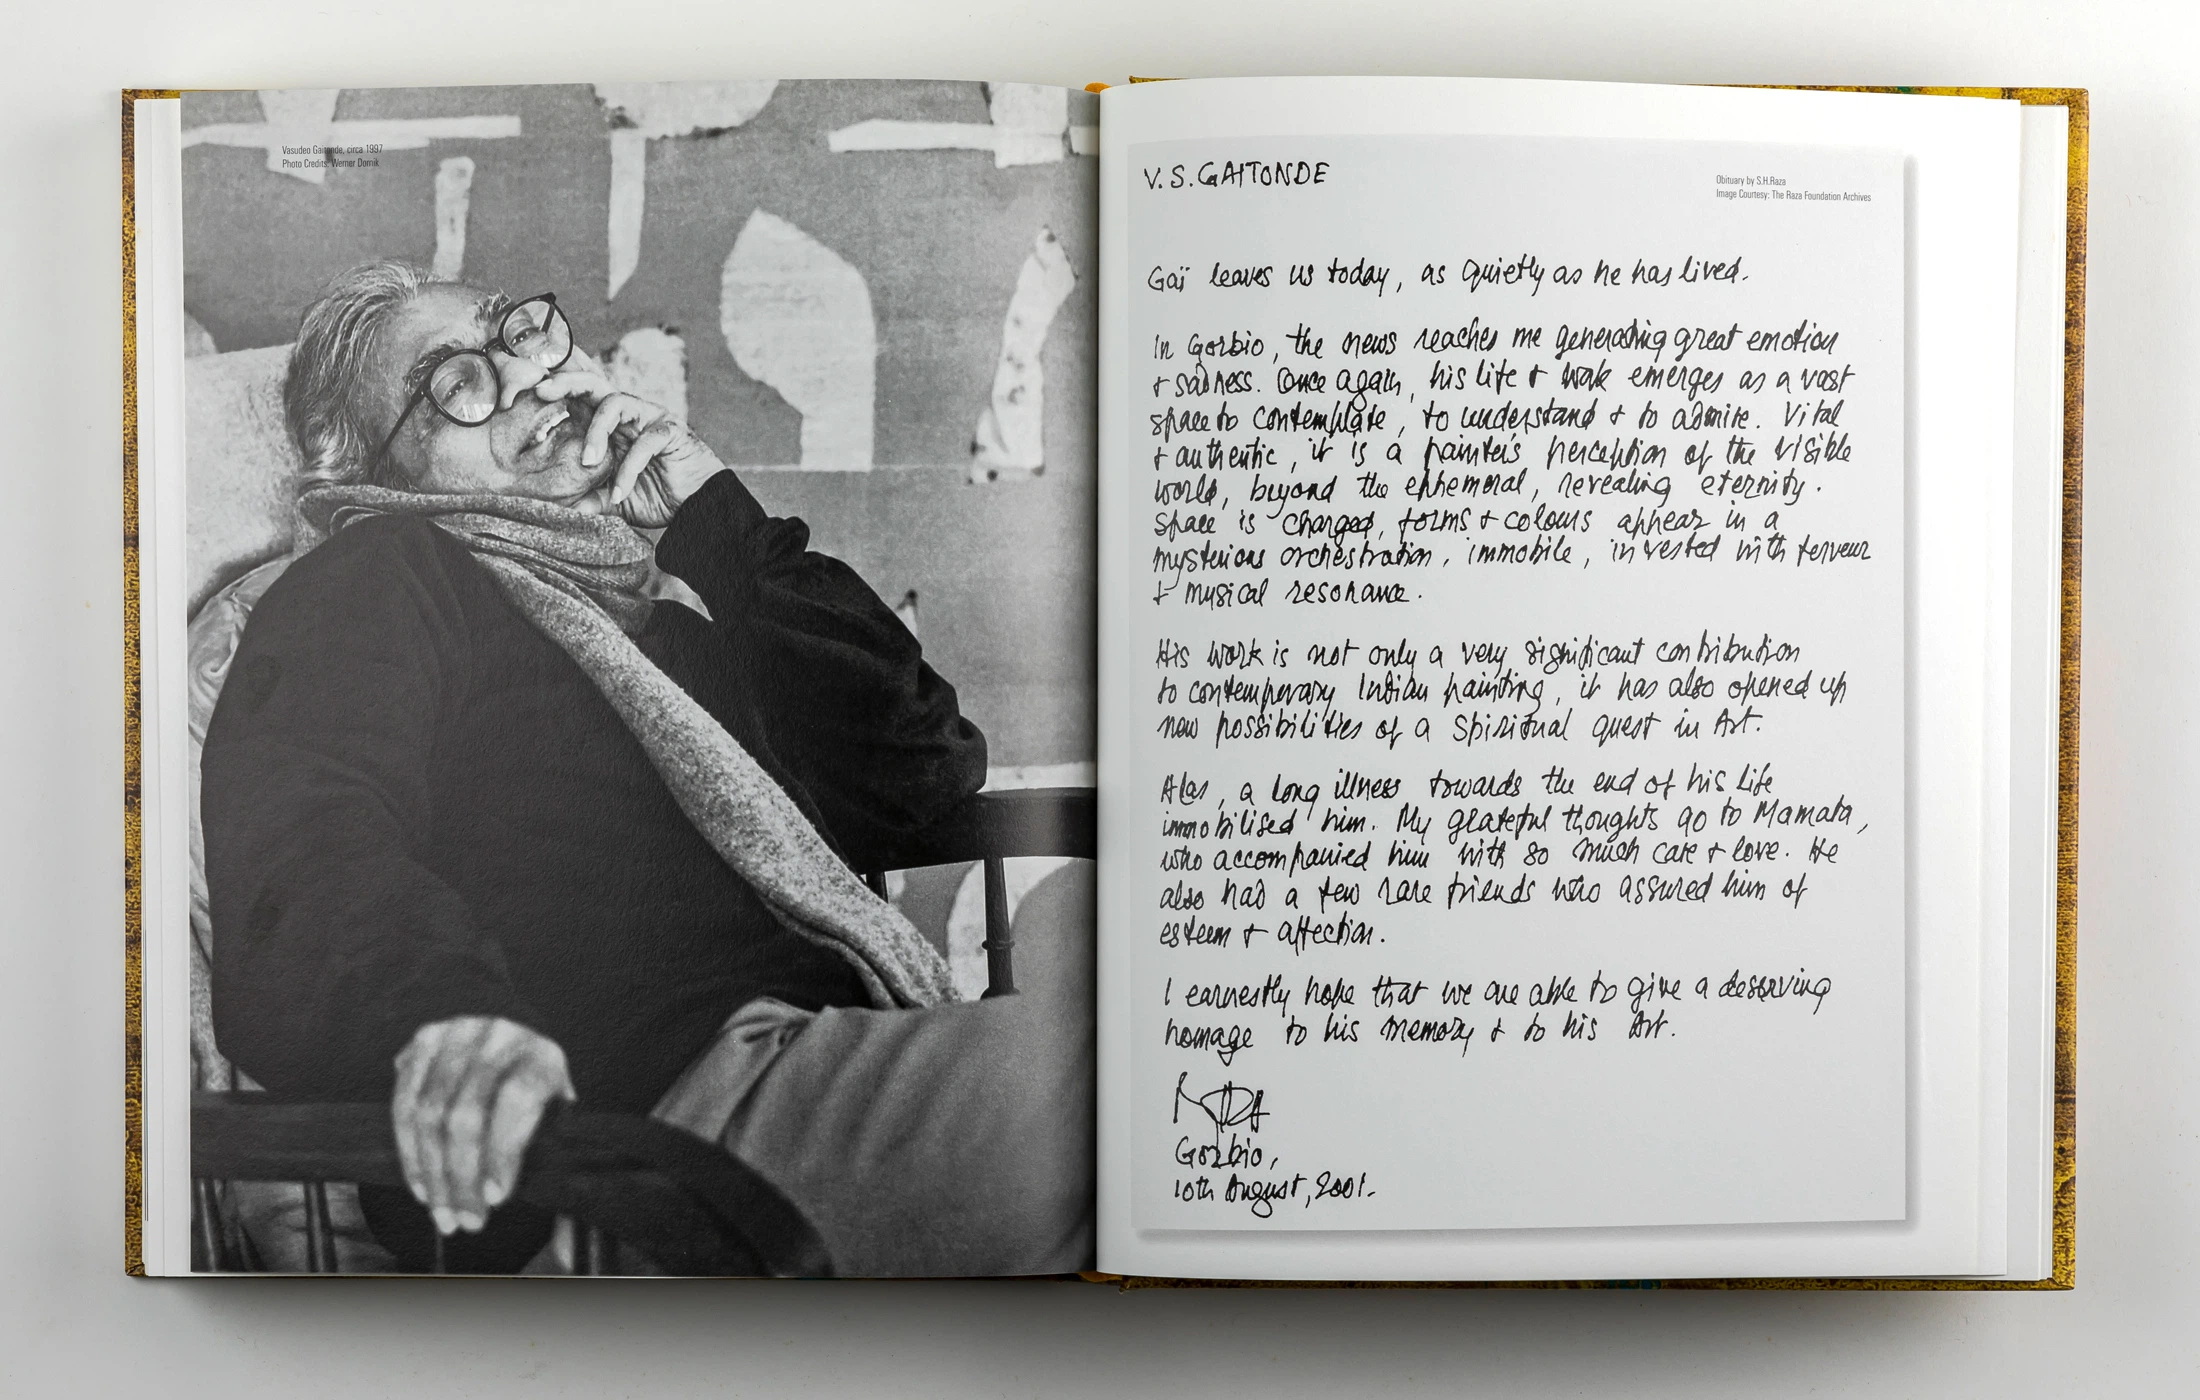 Vasudeo Gaitonde, circa 1997
Photo Credits: Werner Dornik
V. S. GAITONDE
Obituary by S.H.Raza
Image Courtesy: The Raza Foundation Archives
Gaï leaves us today, as quietly as he has lived.
In Gorbio, the news reaches me generating great emotion
& sadness. Once again, his life & work emerges as a vast
space to contemplate, to understand & to admire. Vital
& authentic, it is a painter's perception of the visible
world, beyond the ephemeral, revealing eternity.
Space is charged, forms & colours appear in a
mysterious orchestration, immobile, invested with ferveur
& musical resonance.
His work is not only a very significant contribution
to contemporary Indian painting, it has also opened up
new possibilities of a Spiritual quest in Art.
Alas, a long illness towards the end of his life
immobilised him. My grateful thoughts go to Mamata,
who accompanied him with so much care & love. He
also had a few rare friends who assured him of
esteem & affection.
I earnestly hope that we are able to give a deserving
homage to his memory & to his Art.
RAZA
Gorbio,
10th August, 2001.